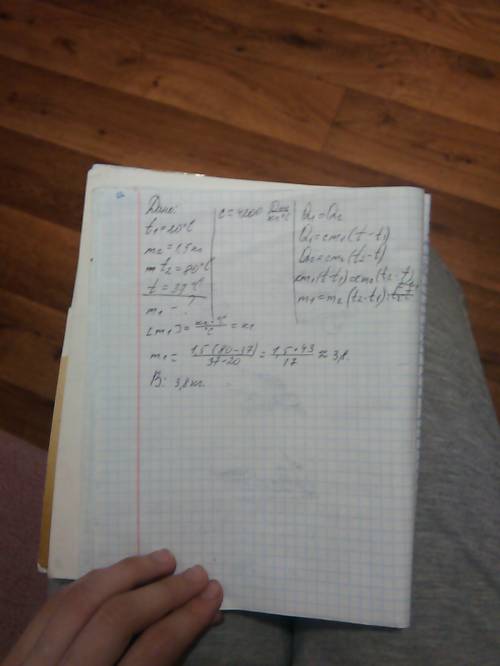 Дано:
t₁=20°C
m₂=1,5 кг
t₂=80°C
t=37°C
m₁-?
c=4200 Дж/кг·°C
Q₁=Q₂
Q₁=cm₁(t-t₁)
Q₂=cm₂(t₂-t)
cm₁(t-t₁)=cm₂(t₂-t)
[m₁]=кг·°C/°C=кг
m₁=1,5(80-37)/37-20=1,5·43/17≈3,8
В: 3,8 кг.